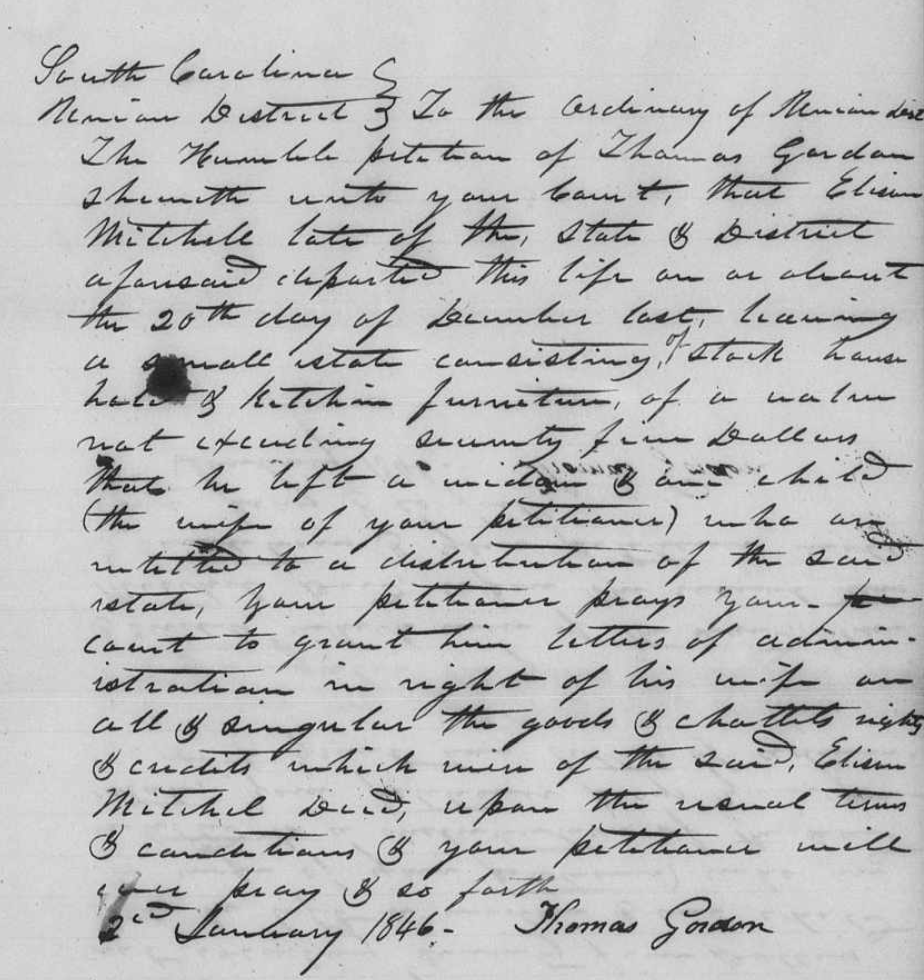 South Carolina }
Marion District } To the Ordinary of Marion Dist
The Humble petition of Thomas Gordon
sheweth unto your Court, that Elison
Mitchell late of the, State & District
aforesaid departed this life on or about
the 20th day of December last, leaving
a small estate consisting, of stock house
hold & Kitchin furniture, of a value
not exceeding seventy five Dollars
that he left a widow & one child
(the wife of your petitioner) who are
entitled to a distribution of the said
estate, Your petitioner prays your
court to grant him letters of admin-
istration in right of his wife on
all & singular the goods & chattels rights
& credits which were of the said, Elison
Mitchel Decd, upon the usual terms
& conditions & your petitioner will
ever pray & so forth
2nd January 1846.- Thomas Gordon